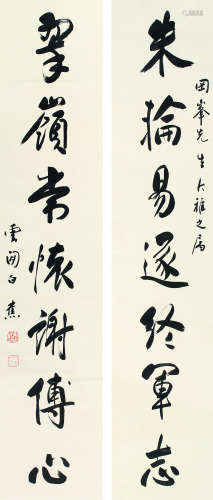 朱掄易遂終軍志
岡峯先生大雅之屬
翠嶺常懷謝傅心
雲間白蕉